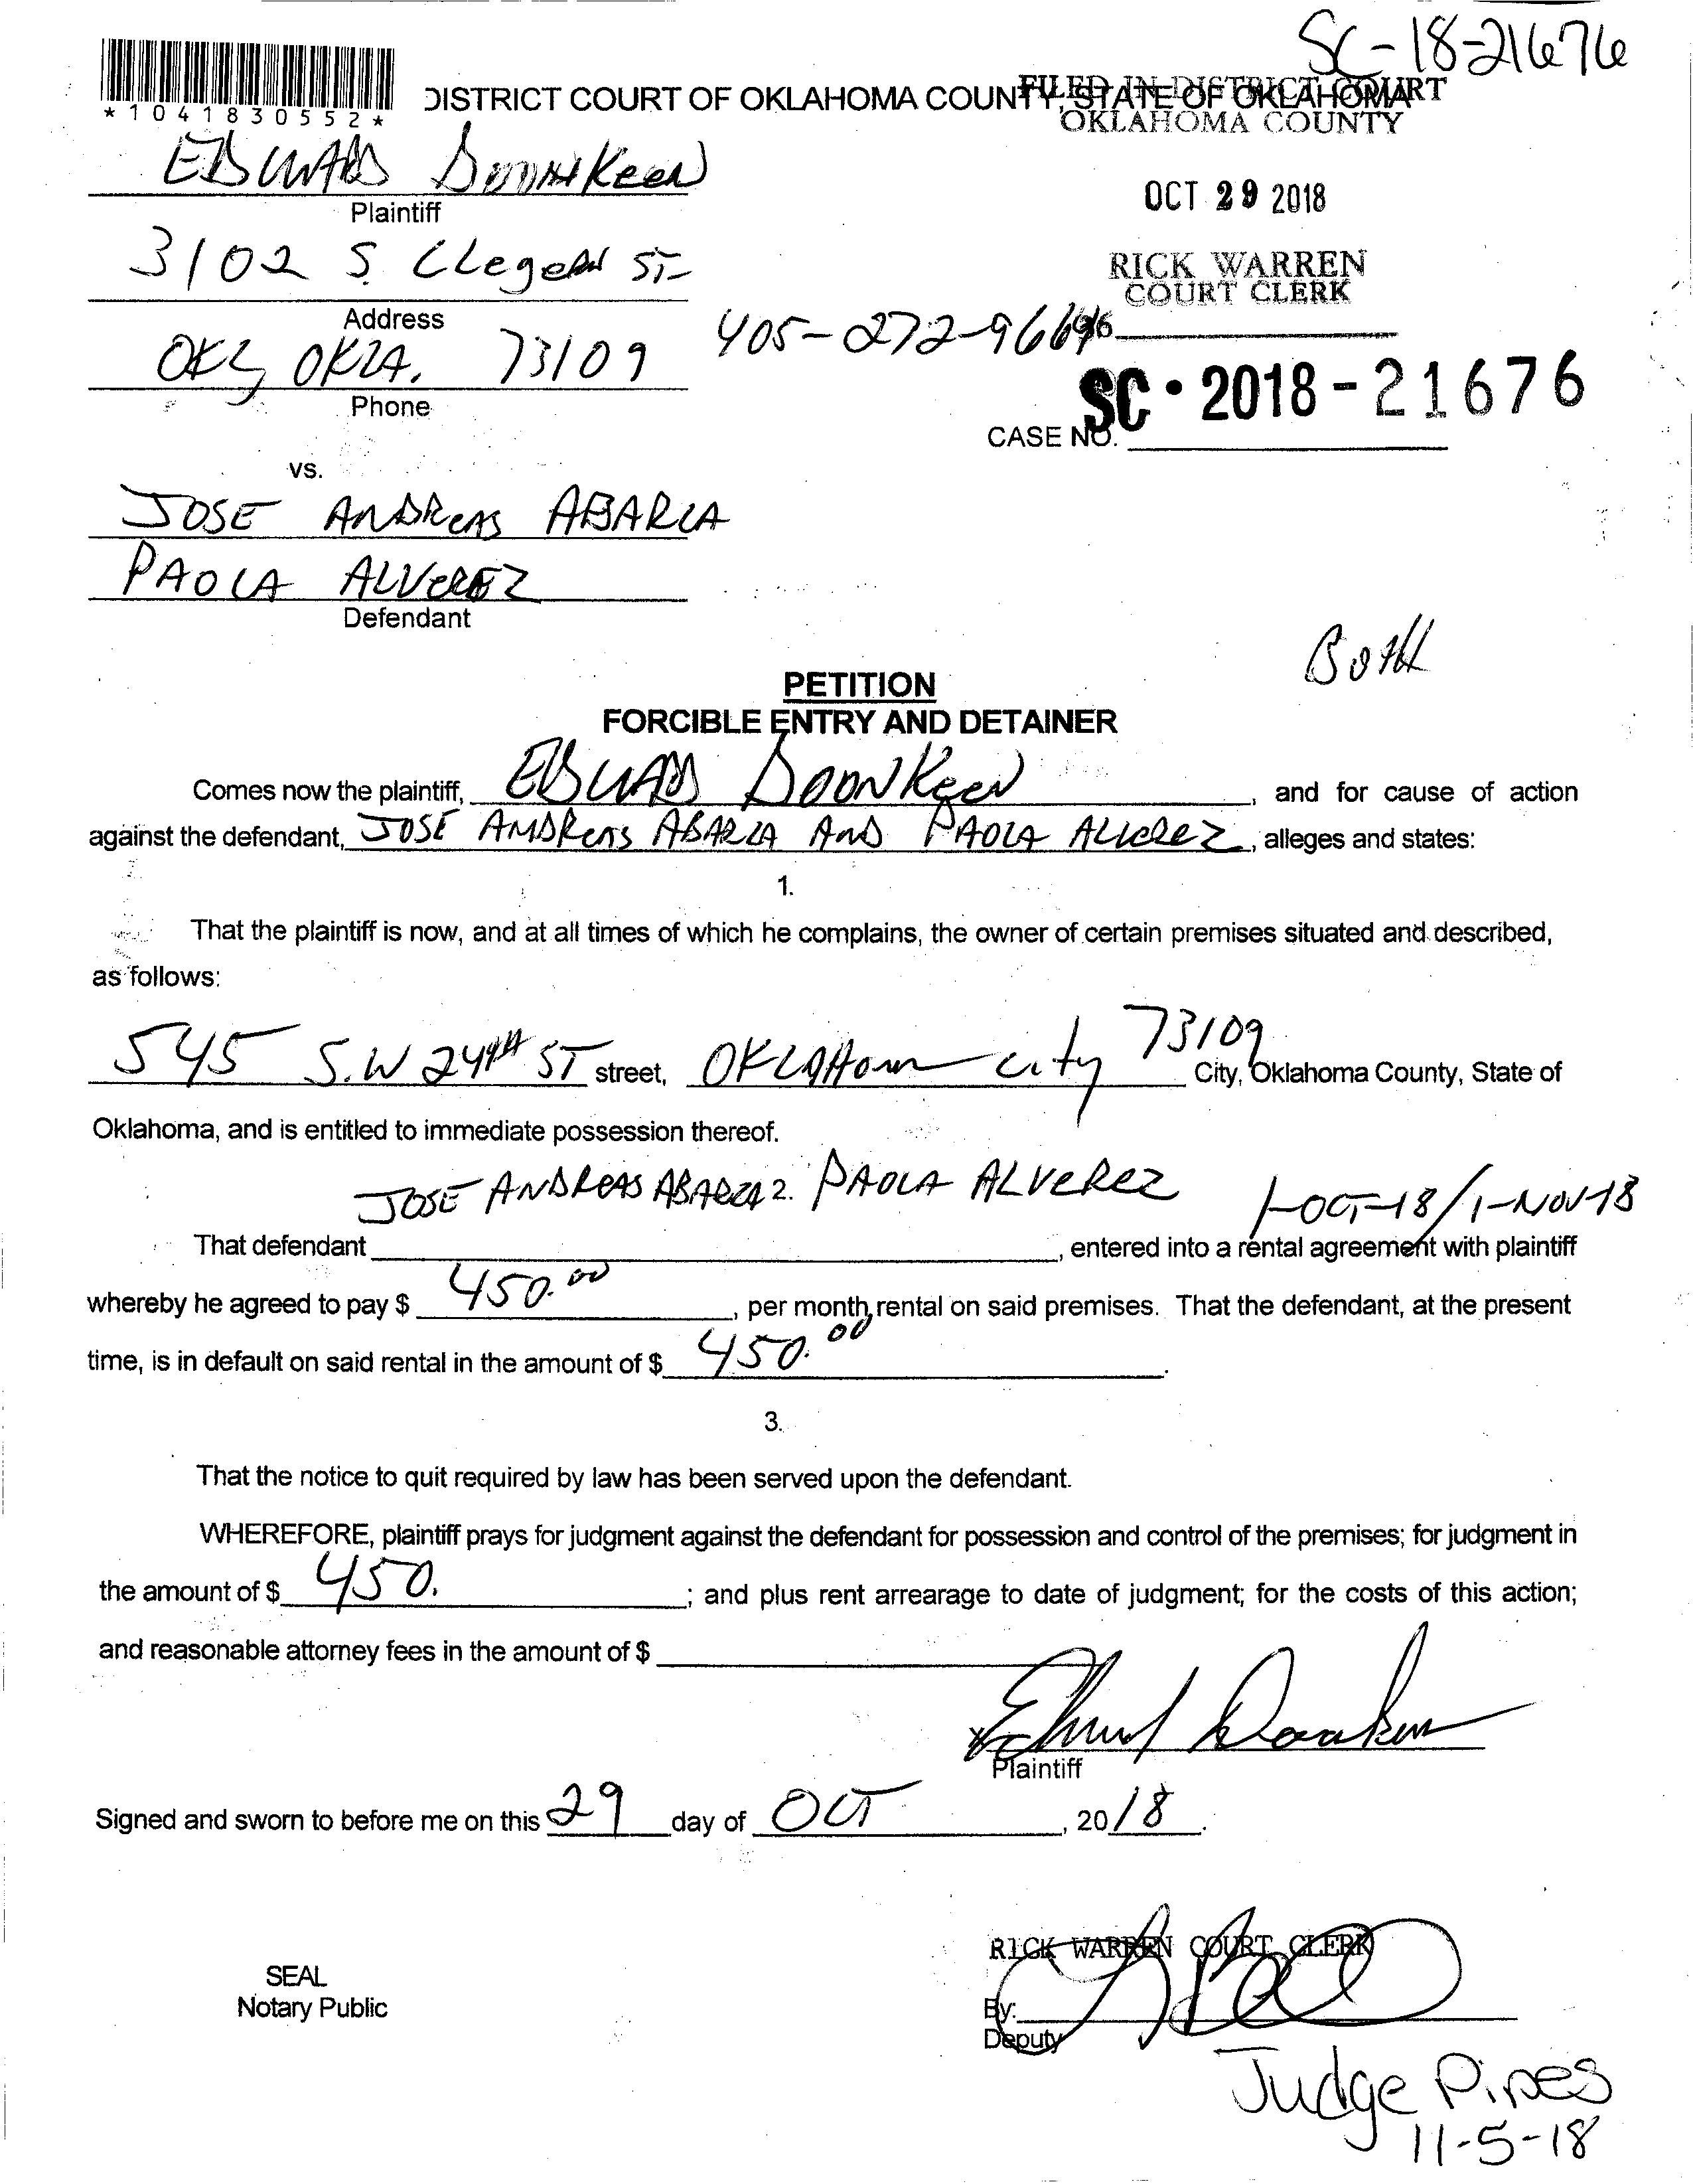 SC-18-21676
*1041830552*
DISTRICT COURT OF OKLAHOMA COUNTY, STATE OF OKLAHOMA
FILED IN DISTRICT COURT
OKLAHOMA COUNTY
EDWARD DOONKEEN
Plaintiff
OCT 29 2018
3102 S. CLegern ST
RICK WARREN
COURT CLERK
Address
405-272-9664
OKC OKLA. 73109
Phone
SC-2018-21676
CASE NO.
vs.
JOSE ANDREAS ABARCA
PAOLA ALVEREZ
Defendant
Both
PETITION
FORCIBLE ENTRY AND DETAINER
Comes now the plaintiff, EDWARD DOONKeen, and for cause of action
against the defendant, JOSE ANDREAS ABARCA AND PAOLA ALVEREZ, alleges and states:
1.
That the plaintiff is now, and at all times of which he complains, the owner of certain premises situated and described,
as follows:
545 S.W 24TH ST street, OKLAHOMA City 73109 City, Oklahoma County, State of
Oklahoma, and is entitled to immediate possession thereof.
2.
1-OCT-18/1-NOV-18
That defendant JOSE ANDREAS ABARCA PAOLA ALVEREZ, entered into a rental agreement with plaintiff
whereby he agreed to pay $ 450.00, per month, rental on said premises. That the defendant, at the present
time, is in default on said rental in the amount of $ 450.00.
3.
That the notice to quit required by law has been served upon the defendant.
WHEREFORE, plaintiff prays for judgment against the defendant for possession and control of the premises; for judgment in
the amount of $ 450.; and plus rent arrearage to date of judgment; for the costs of this action;
and reasonable attorney fees in the amount of $
x Edward Doonkeen
Plaintiff
Signed and sworn to before me on this 29 day of OCT, 2018.
RICK WARREN COURT CLERK
SEAL
Notary Public
By:
Deputy
Judge Pipes
11-5-18